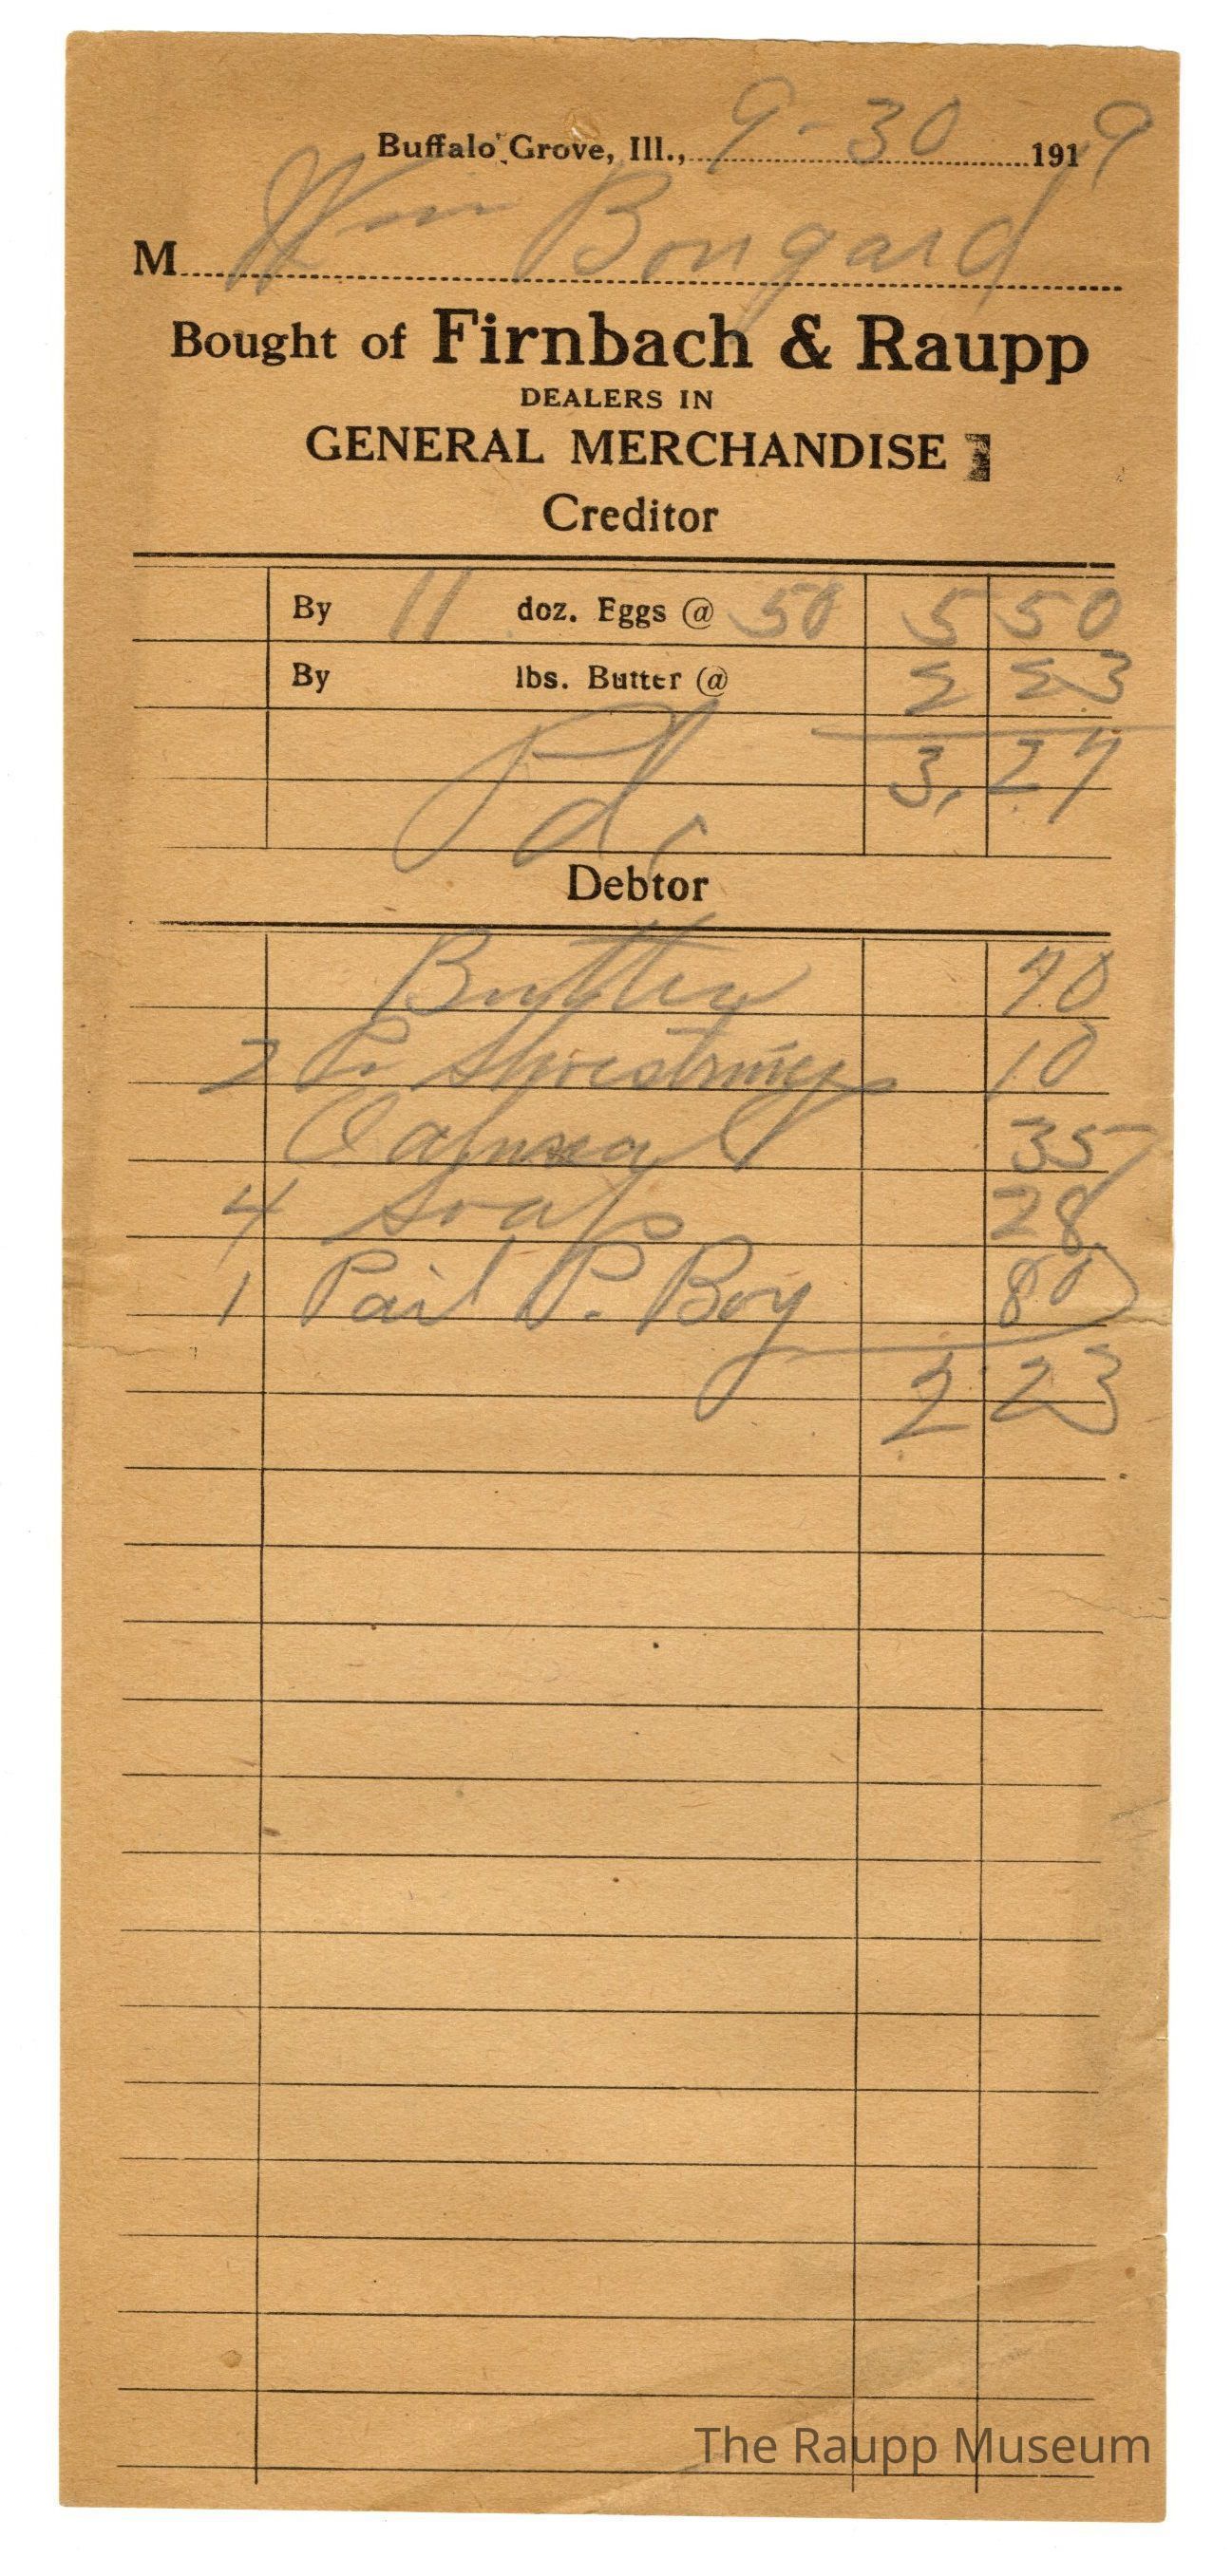 Buffalo Grove, Ill., 9-30 1919
M Wm Bongard
Bought of Firnbach & Raupp
DEALERS IN
GENERAL MERCHANDISE
Creditor
By 11 doz. Eggs @ 50 5 50
By lbs. Butter @ 2 23
3,27
Pd.
Debtor
Butter 70
2 Pr Shoestrings 10
35
4 Soap 28
1 Pail P. Boy 80
2 23
The Raupp Museum